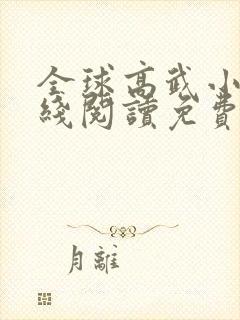 全球高武小
綫閱讀免費
月離